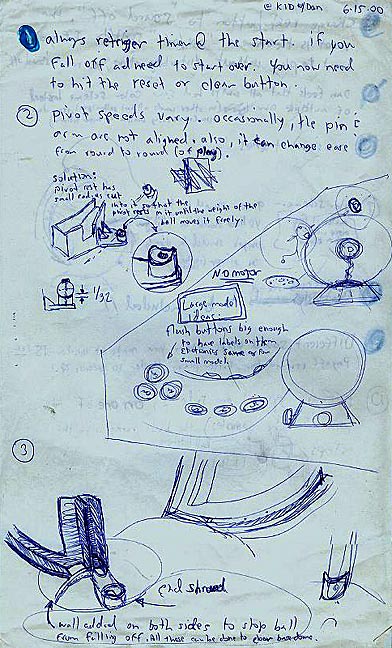 @ KID o/Dan 6-15-00
always retriger timer @ the start. if you
fall off ad need to start over. You now need
to hit the reset or clear button.
② Pivot speeds vary. occasonally, the pin &
arm are not aligned. also, it can change ease
from round to round (of play).
Solution:
pivot rest has
small radius cut
into it so that the
pivot rests in it until the weight of the
ball moves it freely.
1/32
NO motor
Large model
ideas:
flush buttons big enough
to have labels on them
small model.
③
end shroud
wall added on both sides to stop ball
from falling off. All these can be done to